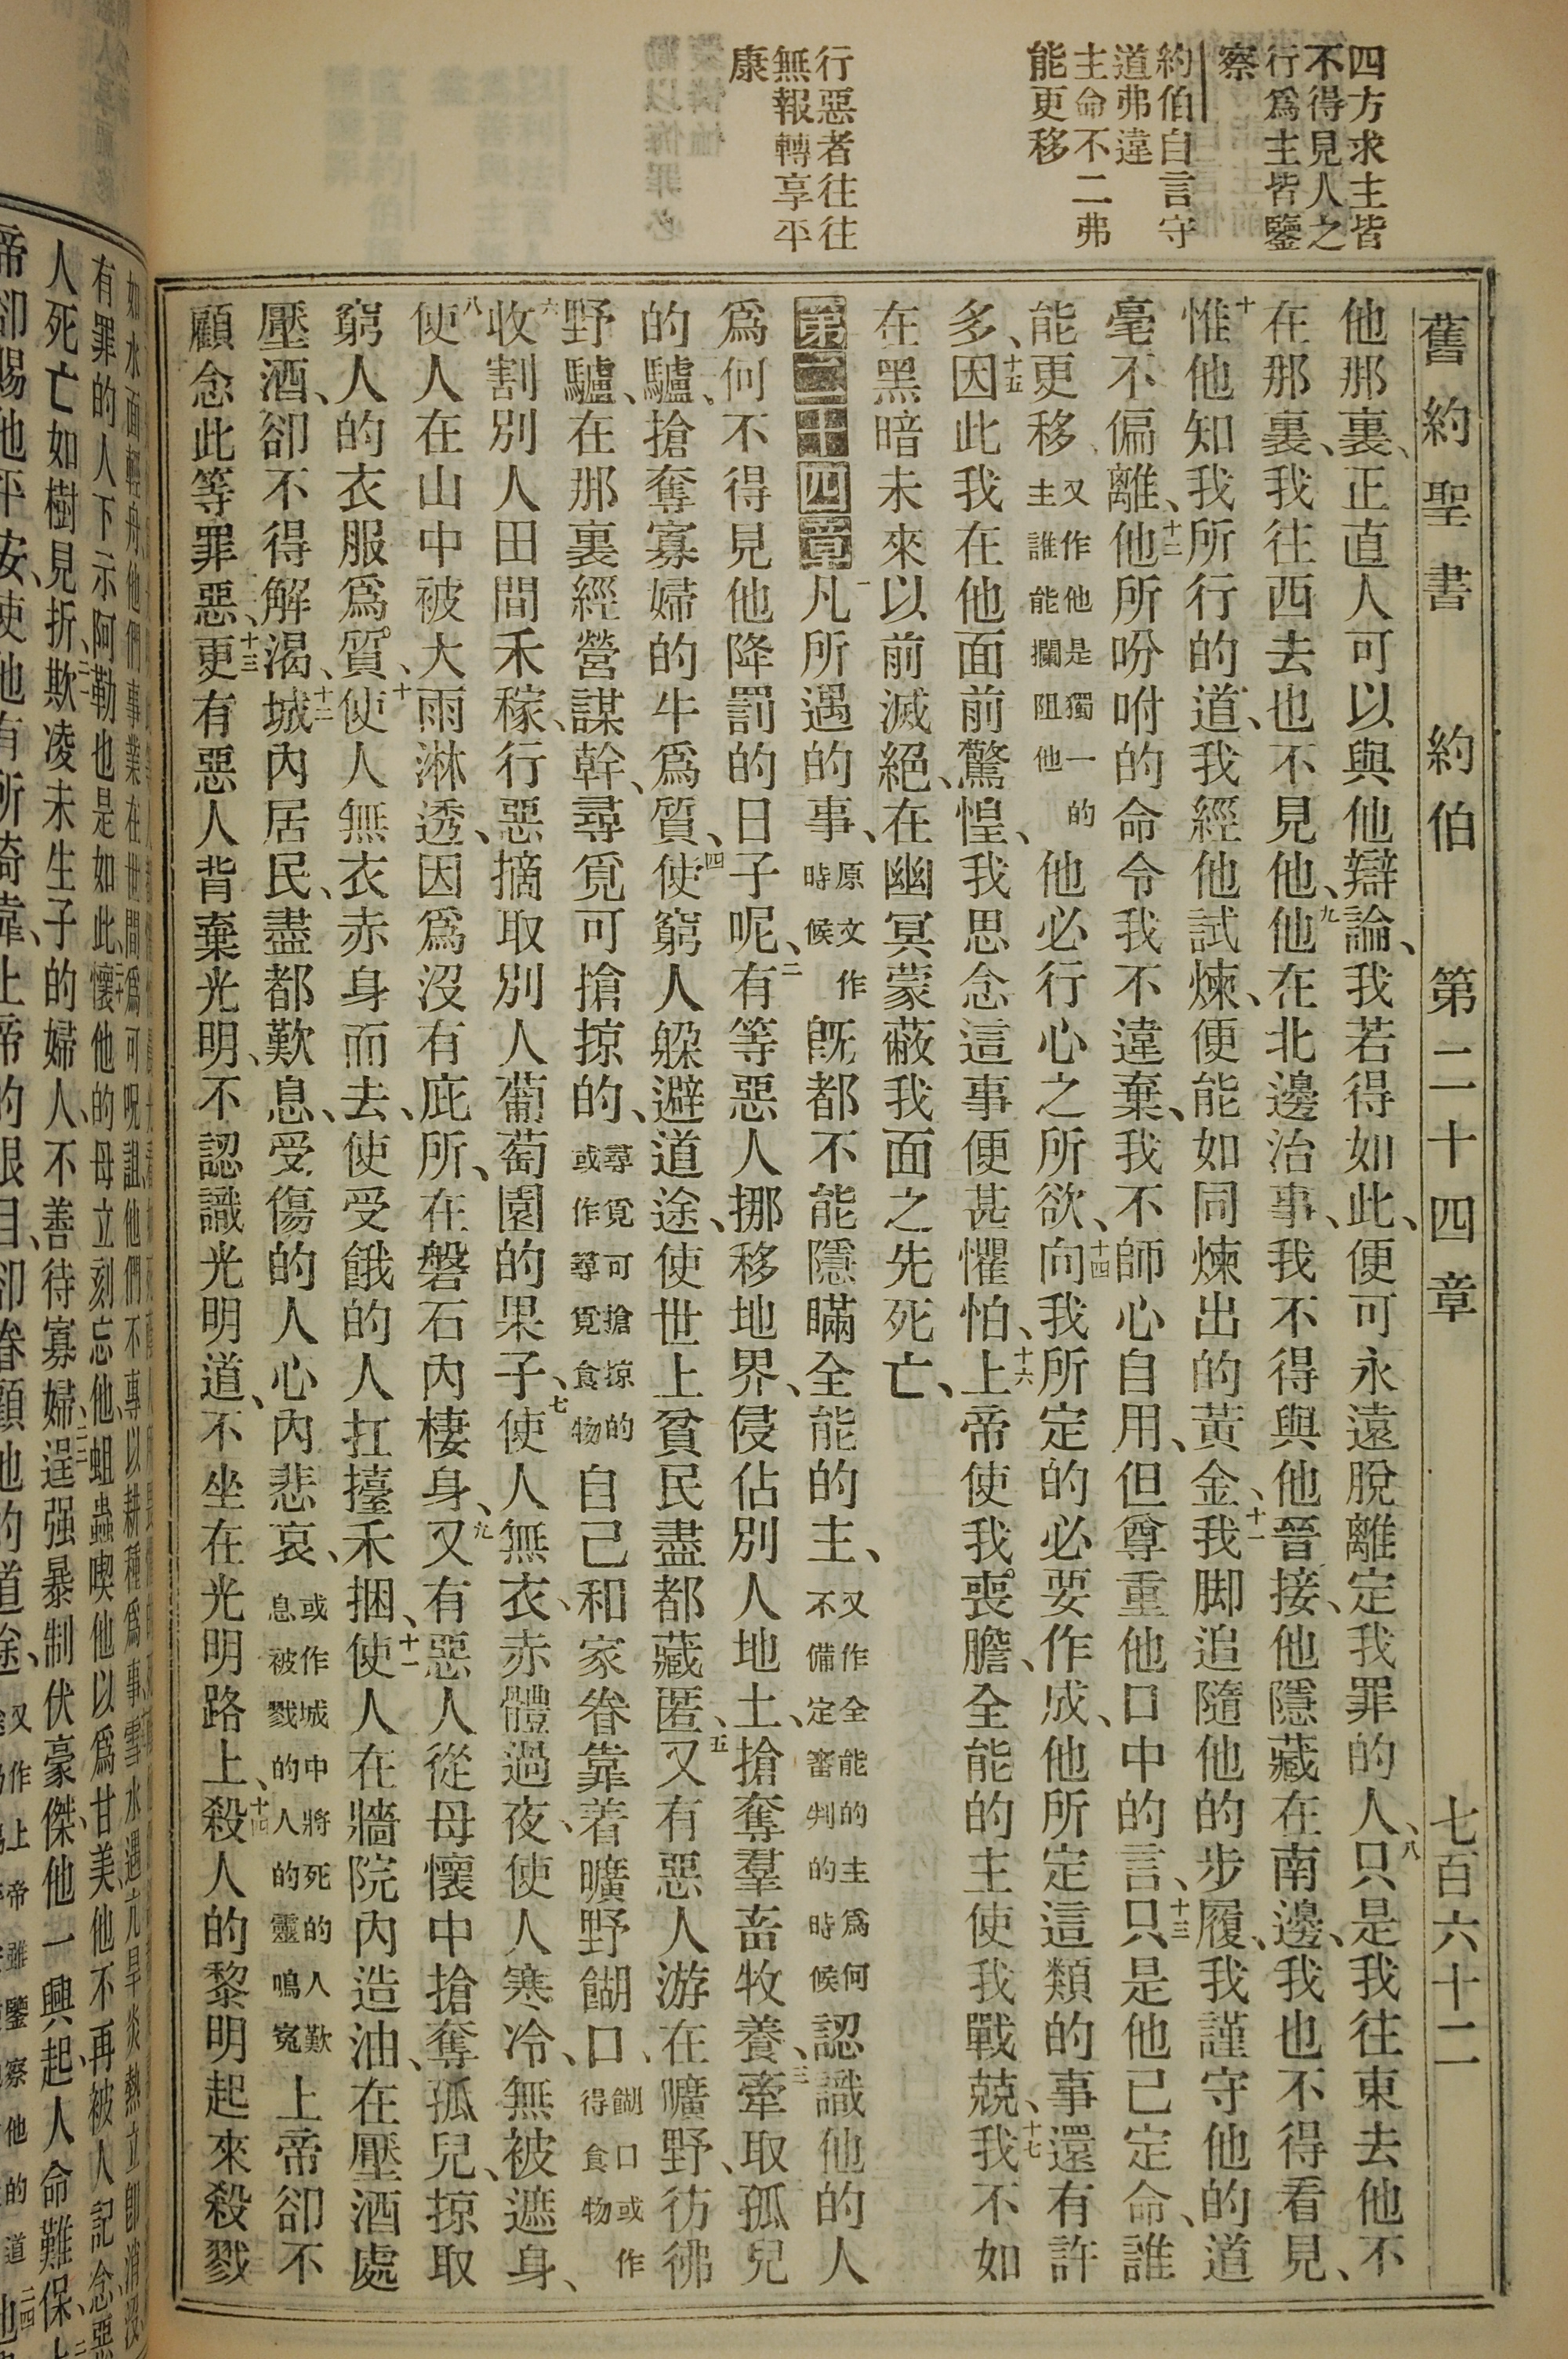 四方求主皆
不得見人之
行爲主皆鑒
察
約伯自言守
道弗違
主命不二弗
能更移
行惡者往往
無報轉享平
康
舊約聖書 約伯 第二十四章 七百六十二
他那裏、正直人可以與他辯論、我若得如此、便可永遠脫離定我罪的人、八只是我往東去他不
在那裏、我往西去也不見他、九他在北邊治事、我不得與他晉接、他隱藏在南邊、我也不得看見、
十惟他知我所行的道、我經他試煉、便能如同煉出的黃金、十一我脚追隨他的步履、我謹守他的道
毫不偏離、十二他所吩咐的命令我不違棄、我不師心自用、但尊重他口中的言、十三只是他已定命、誰
能更移、又作他是獨一的主誰能攔阻他他必行心之所欲、十四向我所定的必要作成、他所定這類的事還有許
多、十五因此我在他面前驚惶、我思念這事便甚懼怕、十六上帝使我喪膽、全能的主使我戰兢、十七我不如
在黑暗未來以前滅絕、在幽冥蒙蔽我面之先死亡、
第二十四章 一凡所遇的事、原文作時候既都不能隱瞞全能的主、又作全能的主爲何不備定審判的時候認識他的人
爲何不得見他降罰的日子呢、二有等惡人挪移地界、侵佔別人地土、搶奪羣畜牧養、三牽取孤兒
的驢、搶奪寡婦的牛爲質、四使窮人躱避道途、使世上貧民盡都藏匿、五又有惡人游在曠野、彷彿
野驢、在那裏經營謀幹、尋覓可搶掠的、尋覓可搶掠的或作尋覓食物自己和家眷靠着曠野餬口、餬口或作得食物
六收割別人田間禾稼、行惡摘取別人葡萄園的果子、七使人無衣、赤體過夜、使人寒冷、無被遮身、
八使人在山中被大雨淋透、因爲沒有庇所、在磐石內棲身、九又有惡人從母懷中搶奪孤兒、掠取
窮人的衣服爲質、十使人無衣赤身而去、使受餓的人扛擡禾捆、十一使人在牆院內造油、在壓酒處
壓酒、卻不得解渴、十二城內居民、盡都歎息、受傷的人心內悲哀、或作城中將死的人歎息被戮的人的靈鳴冤上帝卻不
顧念此等罪惡、十三更有惡人背棄光明、不認識光明道、不坐在光明路上、十四殺人的黎明起來殺戮
有罪的人下示阿勒也是如此、二十懷他的母立刻忘他、蛆蟲喫他以爲甘美、他不再被人記念、
人死亡如樹見折、二一欺凌未生子的婦人、不善待寡婦、二二逞强暴制伏豪傑、他一興起、人命難保、